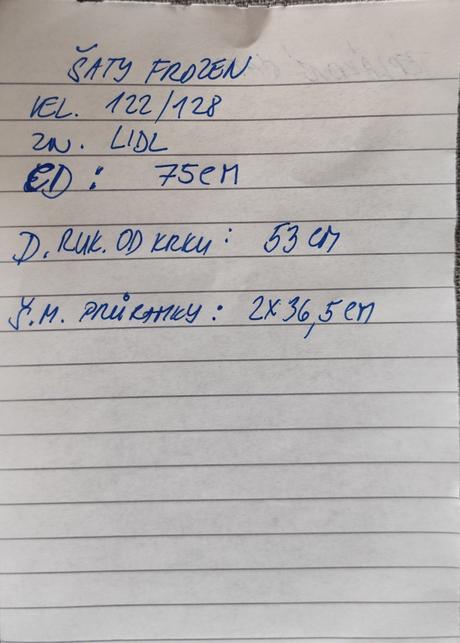 ŠATY FROZEN
VEL. 122/128
ZN. LIDL
CD: 75CM
D. RUK. OD KRKU: 53 CM
Š.M. PRŮRAMKY: 2X36,5CM